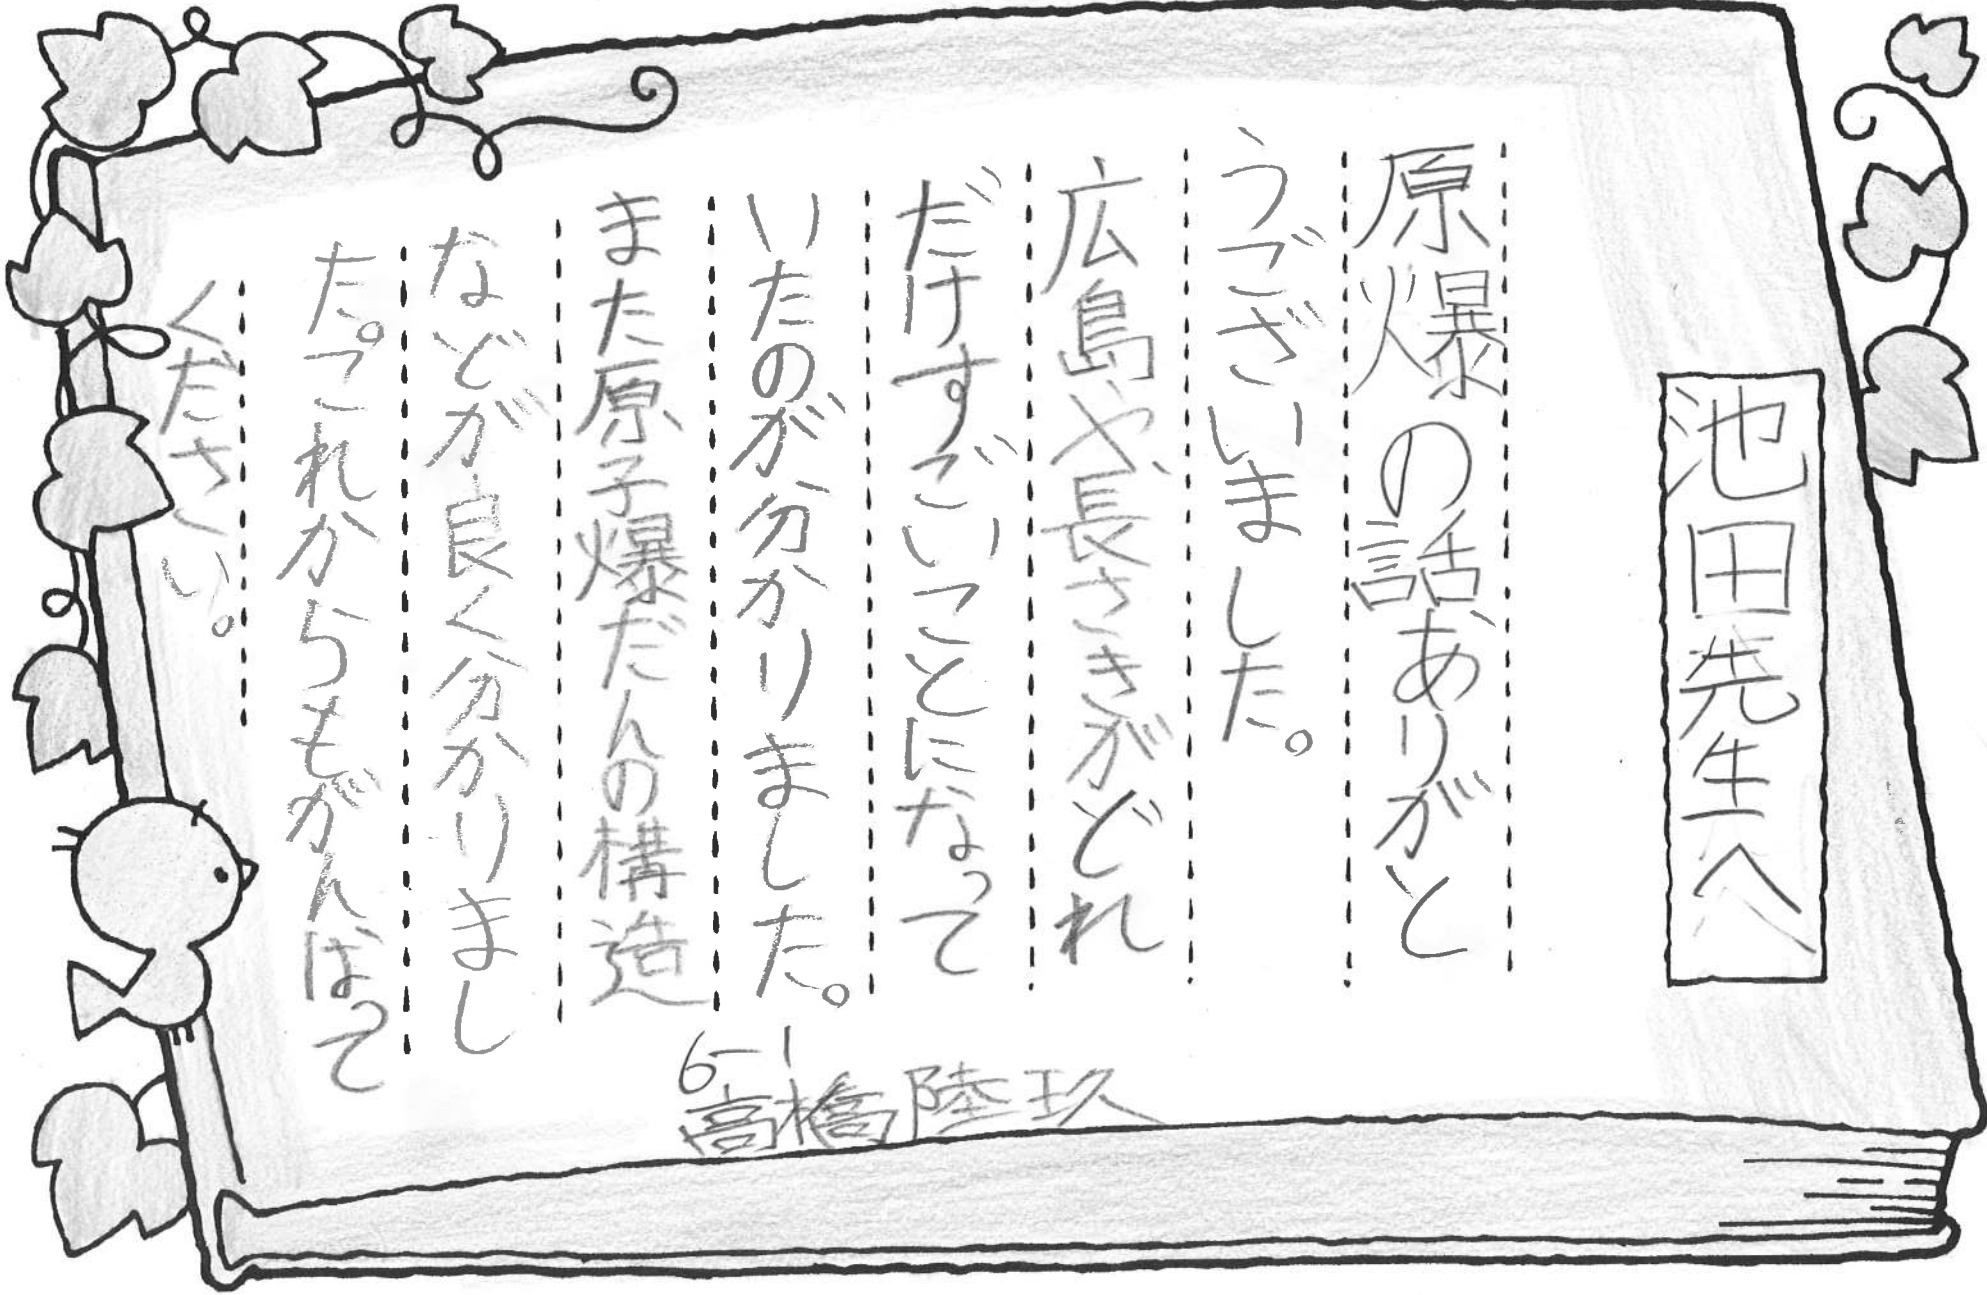 池田先生へ
原爆の話ありがと
うございました。
広島や、長さきがどれ
だけすごいことになって
いたのが分かりました。
また原子爆だんの構造
などが良く分かりまし
た。これからもがんばって
ください。
6-1
高橋陸玖